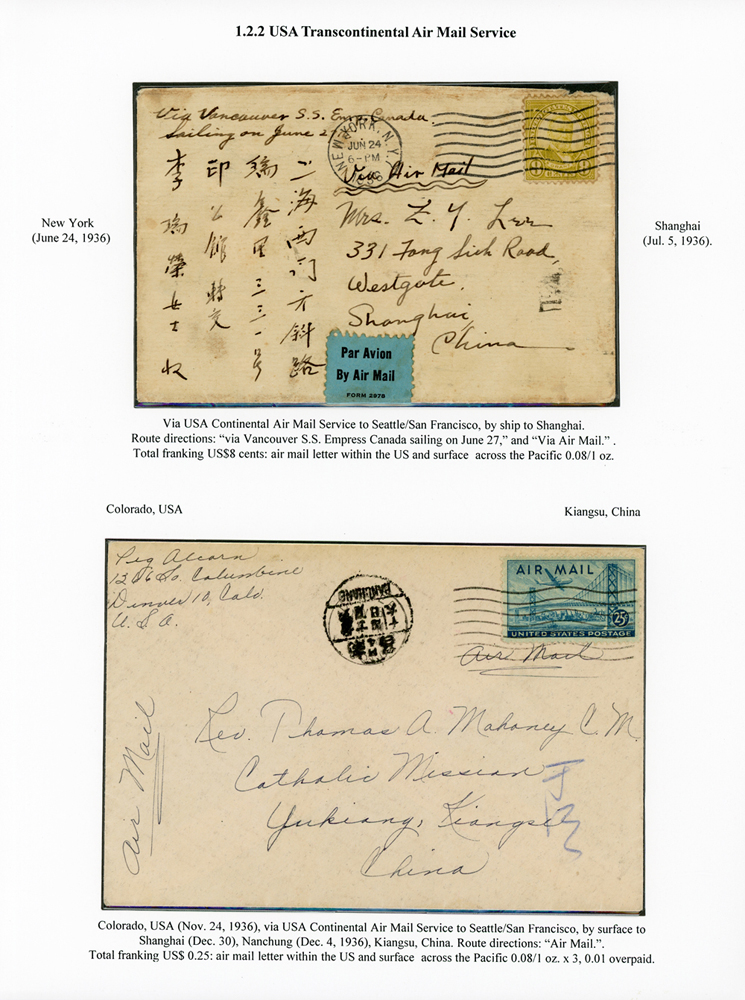 1.2.2 USA Transcontinental Air Mail Service
Via Vancouver S.S. Emp. Canada.
Sailing on June 27
NEW YORK, N.Y.
JUN 24
6-PM
1936
Via Air Mail
8
8
New York
(June 24, 1936)
Shanghai
(Jul. 5, 1936).
Mrs. Z. Y. Lee
331 Fong Sieh Road,
Westgate,
Shanghai,
China
上海西门方斜路
鑫里三三一号
印公館轉交
李瑞榮女士收
Par Avion
By Air Mail
FORM 2978
Via USA Continental Air Mail Service to Seattle/San Francisco, by ship to Shanghai.
Route directions: “via Vancouver S.S. Empress Canada sailing on June 27,” and “Via Air Mail.” .
Total franking US$8 cents: air mail letter within the US and surface across the Pacific 0.08/1 oz.
Colorado, USA
Kiangsu, China
Peg Alcorn
1206 So. Columbine
Denver 10, Colo.
U.S.A.
AIR MAIL
25¢
UNITED STATES POSTAGE
Air Mail
Air Mail
Rev. Thomas A. Mahoney C.M.
Catholic Mission
Yukiang, Kiangse
China
Colorado, USA (Nov. 24, 1936), via USA Continental Air Mail Service to Seattle/San Francisco, by surface to
Shanghai (Dec. 30), Nanchung (Dec. 4, 1936), Kiangsu, China. Route directions: “Air Mail.”.
Total franking US$ 0.25: air mail letter within the US and surface across the Pacific 0.08/1 oz. x 3, 0.01 overpaid.